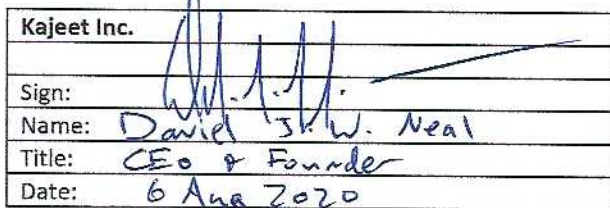 Kajeet Inc.
Sign:
Name: David J. W. Neal
Title: CEO & Founder
Date: 6 Aug 2020